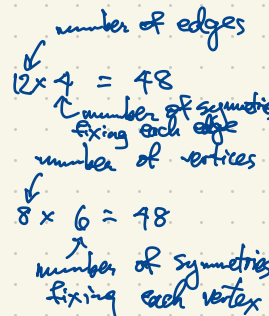 number of edges
12 x 4 = 48
number of symmetries
fixing each edge
number of vertices
8 x 6 = 48
number of symmetries
fixing each vertex